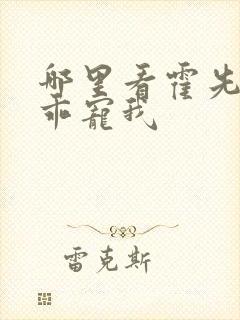 哪里看霍先
乖宠我
雷克斯